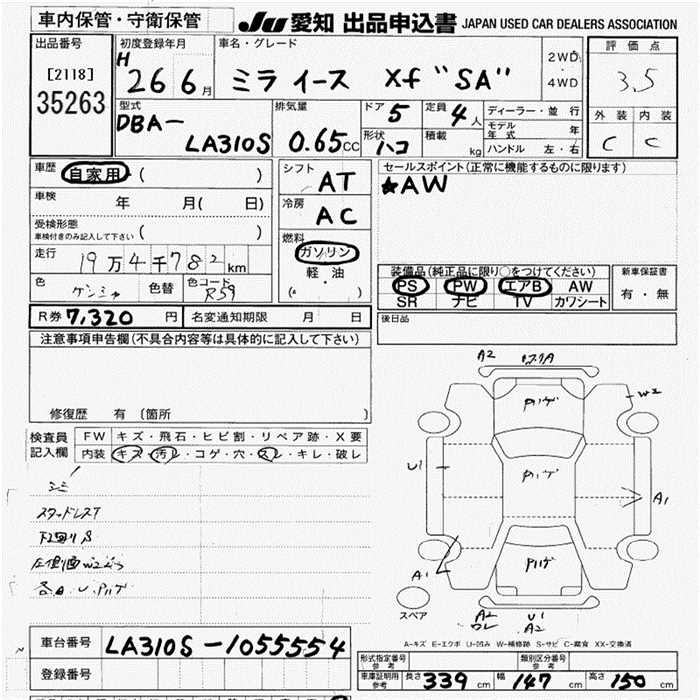 車内保管・守衛保管
JU 愛知 出品申込書 JAPAN USED CAR DEALERS ASSOCIATION
出品番号
[2118]
35263
初度登録年月
H 26年 6月
車名・グレード
ミラ イース Xf "SA"
2WD
4WD
評価点
3.5
外装 内装
C C
型式
DBA-
LA310S
排気量
0.65cc
ドア 5
定員 4人
形状 ハコ
積載 kg
ディーラー・並行
モデル年式 年
ハンドル 左・右
車歴 自家用 ( )
車検 年 月( 日)
受検形態
車検付きのみ記入して下さい ( )
走行 19万4千782km
色 ゲンシャ 色替 色コード R59
シフト AT
冷房 AC
燃料
ガソリン
軽・油
( )
セールスポイント(正常に機能するものに限ります)
★AW
装備品(純正品に限り○をつけてください)
PS PW エアB AW
SR ナビ TV カワシート
新車保証書
有・無
後日品
R券 7,320円 名変通知期限 月 日
注意事項申告欄(不具合内容等は具体的に記入して下さい)
修復歴 有(箇所 )
検査員記入欄
FW キズ・飛石・ヒビ割・リペア跡・X要
内装 キズ・汚レ・コゲ・穴・スレ・キレ・破レ
シミ
スタッドレスT
下廻りS
各A.U.Pハゲ
A2
Pハゲ
W2
U1
Pハゲ
A1
A1
Pハゲ
スペア
A2
ワレ
U1
A2
A-キズ E-エクボ U-凹み W-補修跡 S-サビ C-腐食 XX-交換済
車台番号 LA310S-1055554
登録番号
形式指定番号参考
類別区分番号参考
車庫証明用参考 長さ 339 cm 幅 147 cm 高さ 150 cm